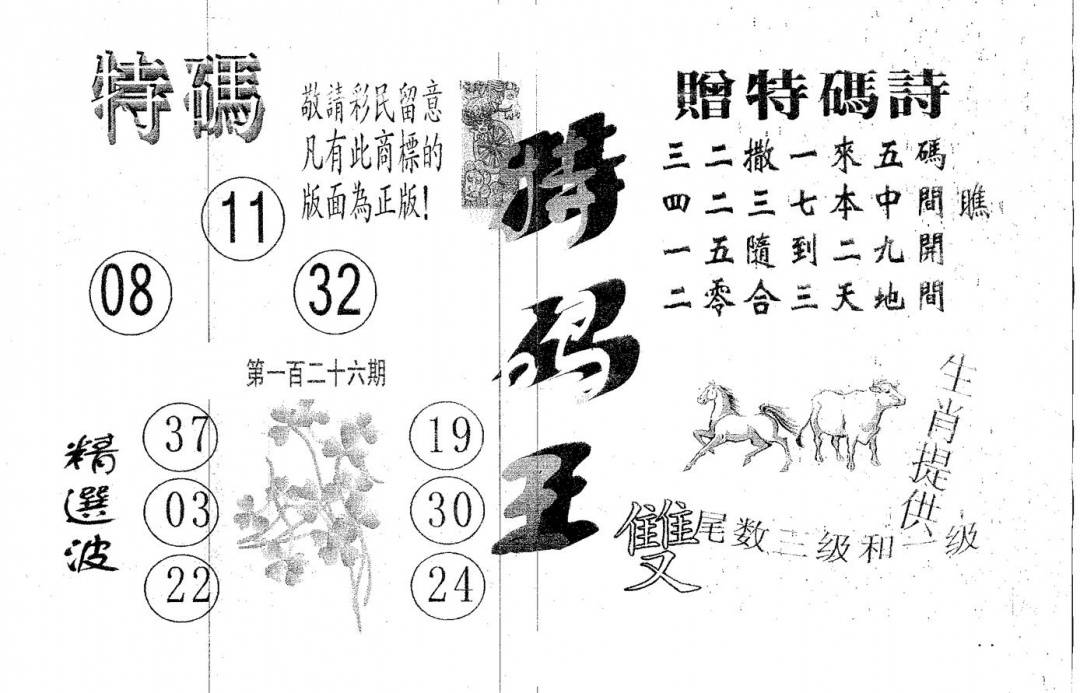 特碼
敬請彩民留意
凡有此商標的
版面為正版!
11
08
32
第一百二十六期
精選波
37
03
22
19
30
24
特码王
贈特碼詩
三二撒一來五碼
四二三七本中間瞧
一五隨到二九開
二零合三天地間
生肖提供
雙尾数二级和一级